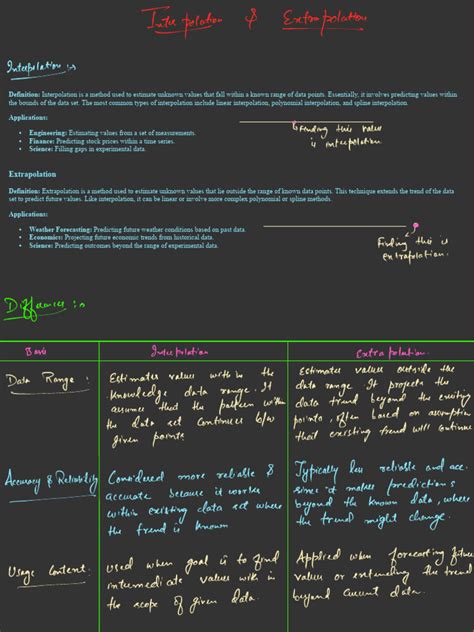 Interpolation & Extrapolation
Interpolation :-
Definition: Interpolation is a method used to estimate unknown values that fall within a known range of data points. Essentially, it involves predicting values within
the bounds of the data set. The most common types of interpolation include linear interpolation, polynomial interpolation, and spline interpolation.
Applications:
• Engineering: Estimating values from a set of measurements.
• Finance: Predicting stock prices within a time series.
• Science: Filling gaps in experimental data.
Finding this value
is interpolation
Extrapolation
Definition: Extrapolation is a method used to estimate unknown values that lie outside the range of known data points. This technique extends the trend of the data
set to predict future values. Like interpolation, it can be linear or involve more complex polynomial or spline methods.
Applications:
• Weather Forecasting: Predicting future weather conditions based on past data.
• Economics: Projecting future economic trends from historical data.
• Science: Predicting outcomes beyond the range of experimental data.
Finding this is
extrapolation.
Differences :-
Basis
Interpolation
Extrapolation.
Data Range :
Estimates values with in the
knowledge data range. It
assumes that the pattern within
the data set continues b/w
given points
Estimates values outside the
data range. It projects the
data trend beyond the existing
points, often based on assumption
that existing trend will continue
Accuracy & Reliability
Considered more reliable &
accurate because it works
within existing data set where
the trend is known
Typically less reliable and acc.
since it makes predictions
beyond the known data, where
the trend might change.
Usage Context:
Used when goal is to find
intermediate values with in
the scope of given data.
Applied when forecasting future
values or extending the trend
beyond current data.